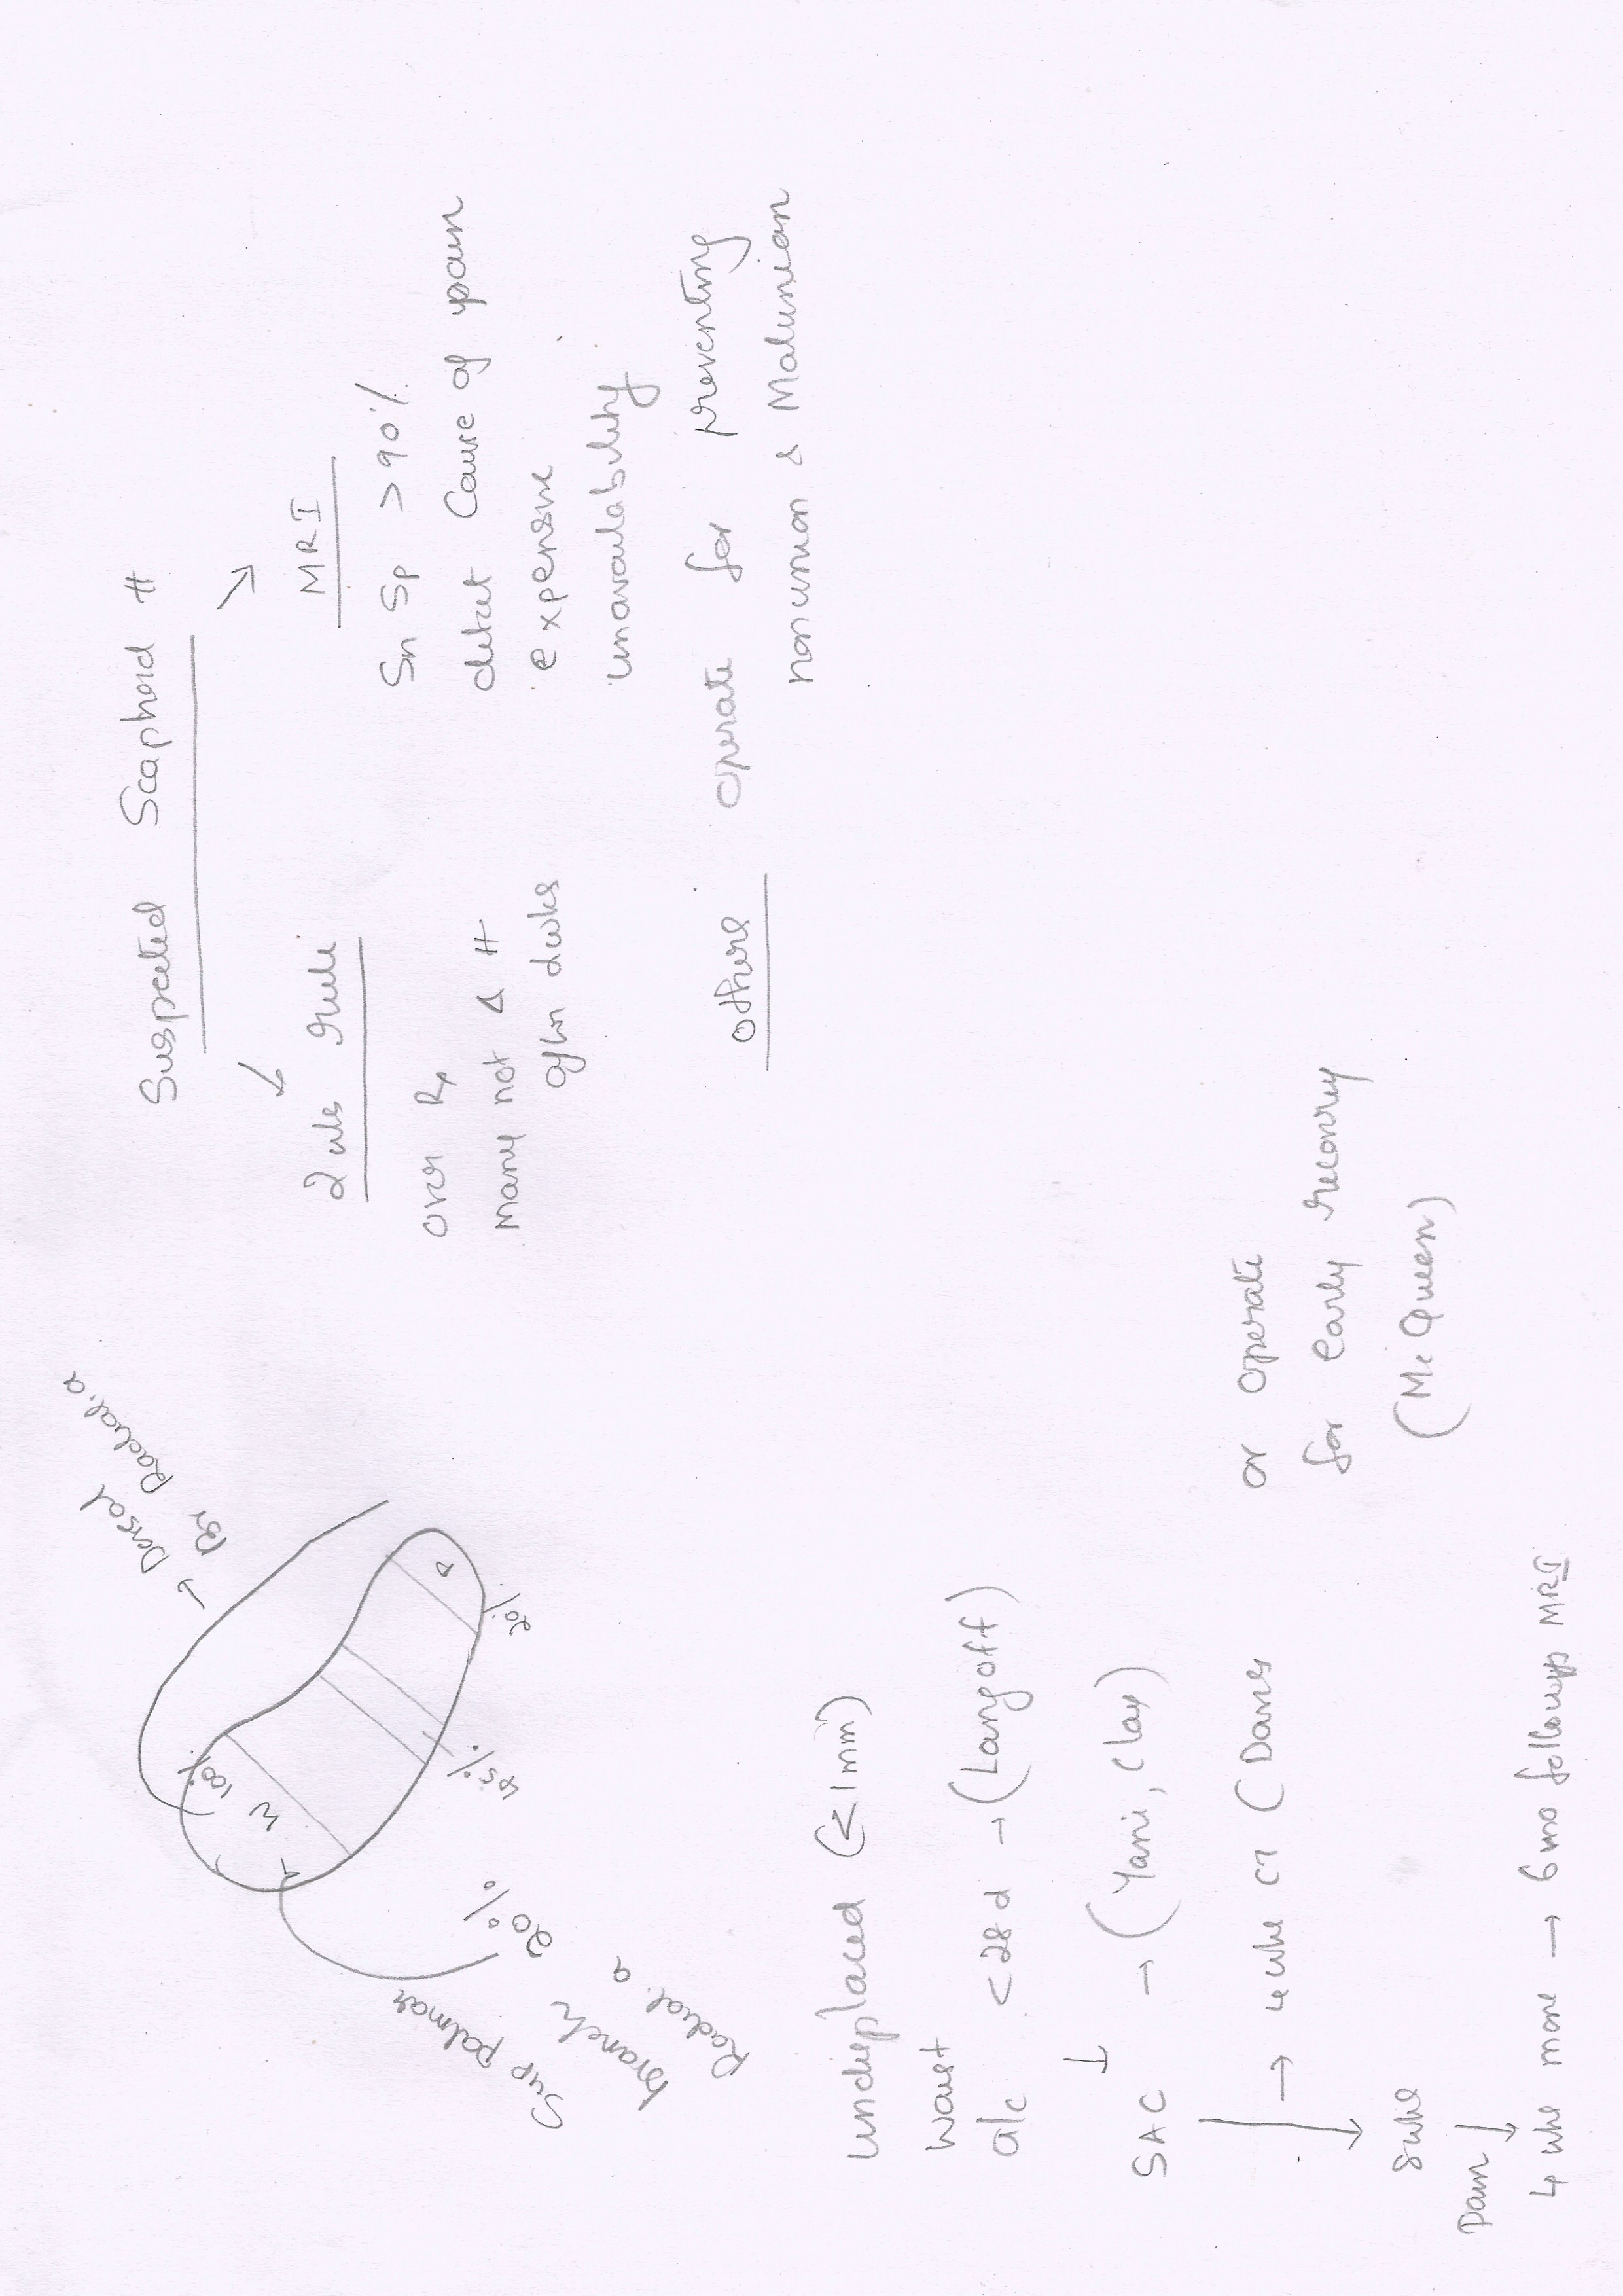 → Dorsal
Br Radial. a
100%
45%
20%
20%
Sup palmar
branch
Radial. a
Undisplaced (<1mm)
waist
a/c <28d → (Langoff)
↓
SAC → (Yani, Clay)
→ 4 wks CT (Davis
8wks
Pain ↓
4 wks more → 6 mo followup MRI
or operate
for early recovery
(McQueen)
Suspected Scaphoid #
2 wks rule
over Rx
Many not Δ #
after 2wks
MRI
Sn Sp >90%
detect Cause of pain
expensive
unavailability
others operate for preventing
nonunion & Malunion